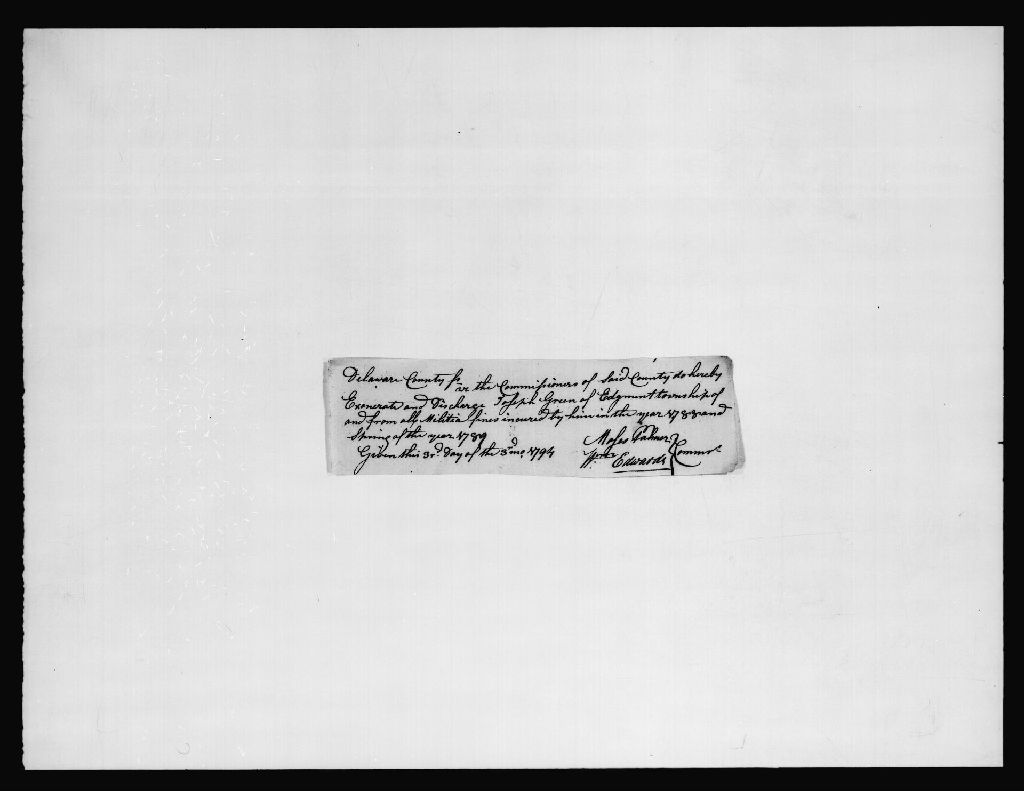 Delaware County ss we the Commissioners of Said County do hereby
Exonerate and Discharge Joseph Green of Edgmunt township of
and from all Militia fines incured by him in the year 1788 and
Spring of the year 1789
Given this 3rd Day of the 3rd mo, 1794
Moses Palmer
Edwards Commrs